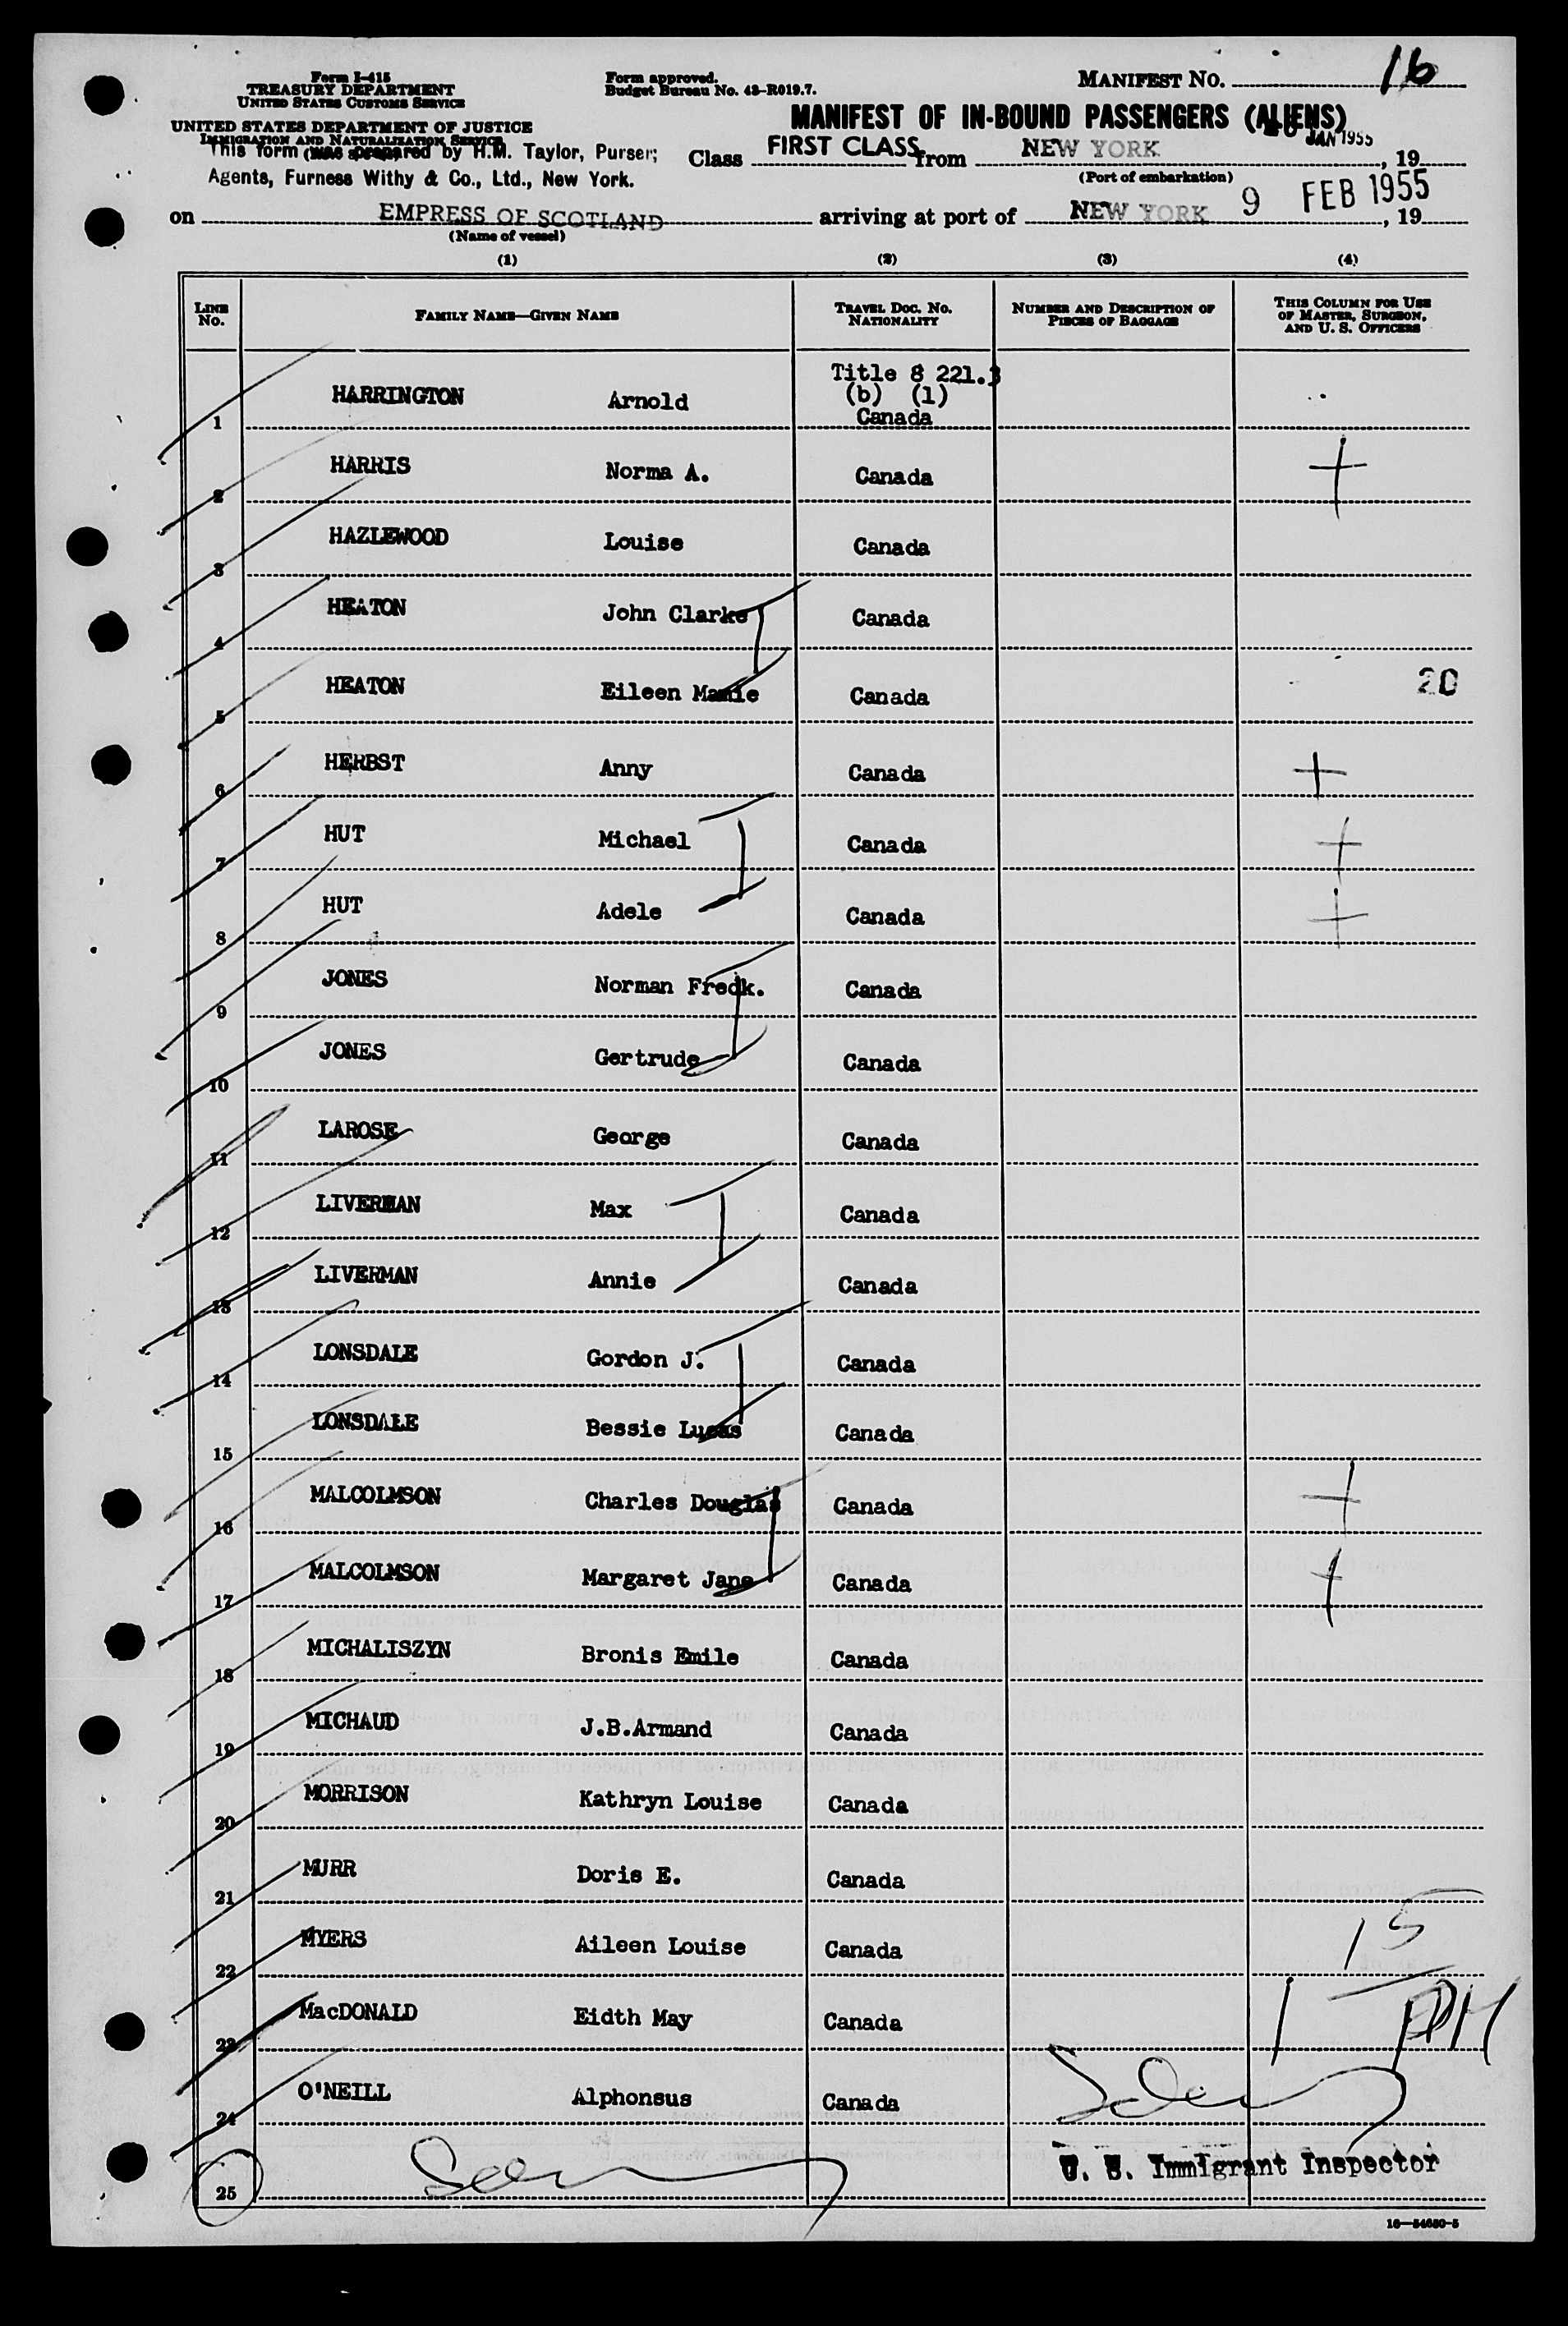 Form I-415
TREASURY DEPARTMENT
UNITED STATES CUSTOMS SERVICE
UNITED STATES DEPARTMENT OF JUSTICE
IMMIGRATION AND NATURALIZATION SERVICE
This form was prepared by H.M. Taylor, Purser;
Agents, Furness Withy & Co., Ltd., New York.
Form approved.
Budget Bureau No. 43-R019.7.
MANIFEST NO. 16
MANIFEST OF IN-BOUND PASSENGERS (ALIENS)
Class FIRST CLASS from NEW YORK JAN 1955, 19
(Port of embarkation)
on EMPRESS OF SCOTLAND arriving at port of NEW YORK 9 FEB 1955, 19
(Name of vessel)
(1) (2) (3) (4)
LINE No. FAMILY NAME—GIVEN NAME TRAVEL DOC. NO. NATIONALITY NUMBER AND DESCRIPTION OF PIECES OF BAGGAGE THIS COLUMN FOR USE OF MASTER, SURGEON, AND U. S. OFFICERS
Title 8 221.3
(b) (1)
1 HARRINGTON Arnold Canada
2 HARRIS Norma A. Canada +
3 HAZLEWOOD Louise Canada
4 HEATON John Clarke Canada
5 HEATON Eileen Mamie Canada 20
6 HERBST Anny Canada +
7 HUT Michael Canada +
8 HUT Adele Canada +
9 JONES Norman Fredk. Canada
10 JONES Gertrude Canada
11 LAROSE George Canada
12 LIVERMAN Max Canada
13 LIVERMAN Annie Canada
14 LONSDALE Gordon J. Canada
15 LONSDALE Bessie Lucas Canada
16 MALCOLMSON Charles Douglas Canada +
17 MALCOLMSON Margaret Jane Canada +
18 MICHALISZYN Bronis Emile Canada
19 MICHAUD J.B.Armand Canada
20 MORRISON Kathryn Louise Canada
21 MURR Doris E. Canada
22 MYERS Aileen Louise Canada 15
23 MacDONALD Eidth May Canada
24 O'NEILL Alphonsus Canada
25
U. S. Immigrant Inspector
16—54650-5